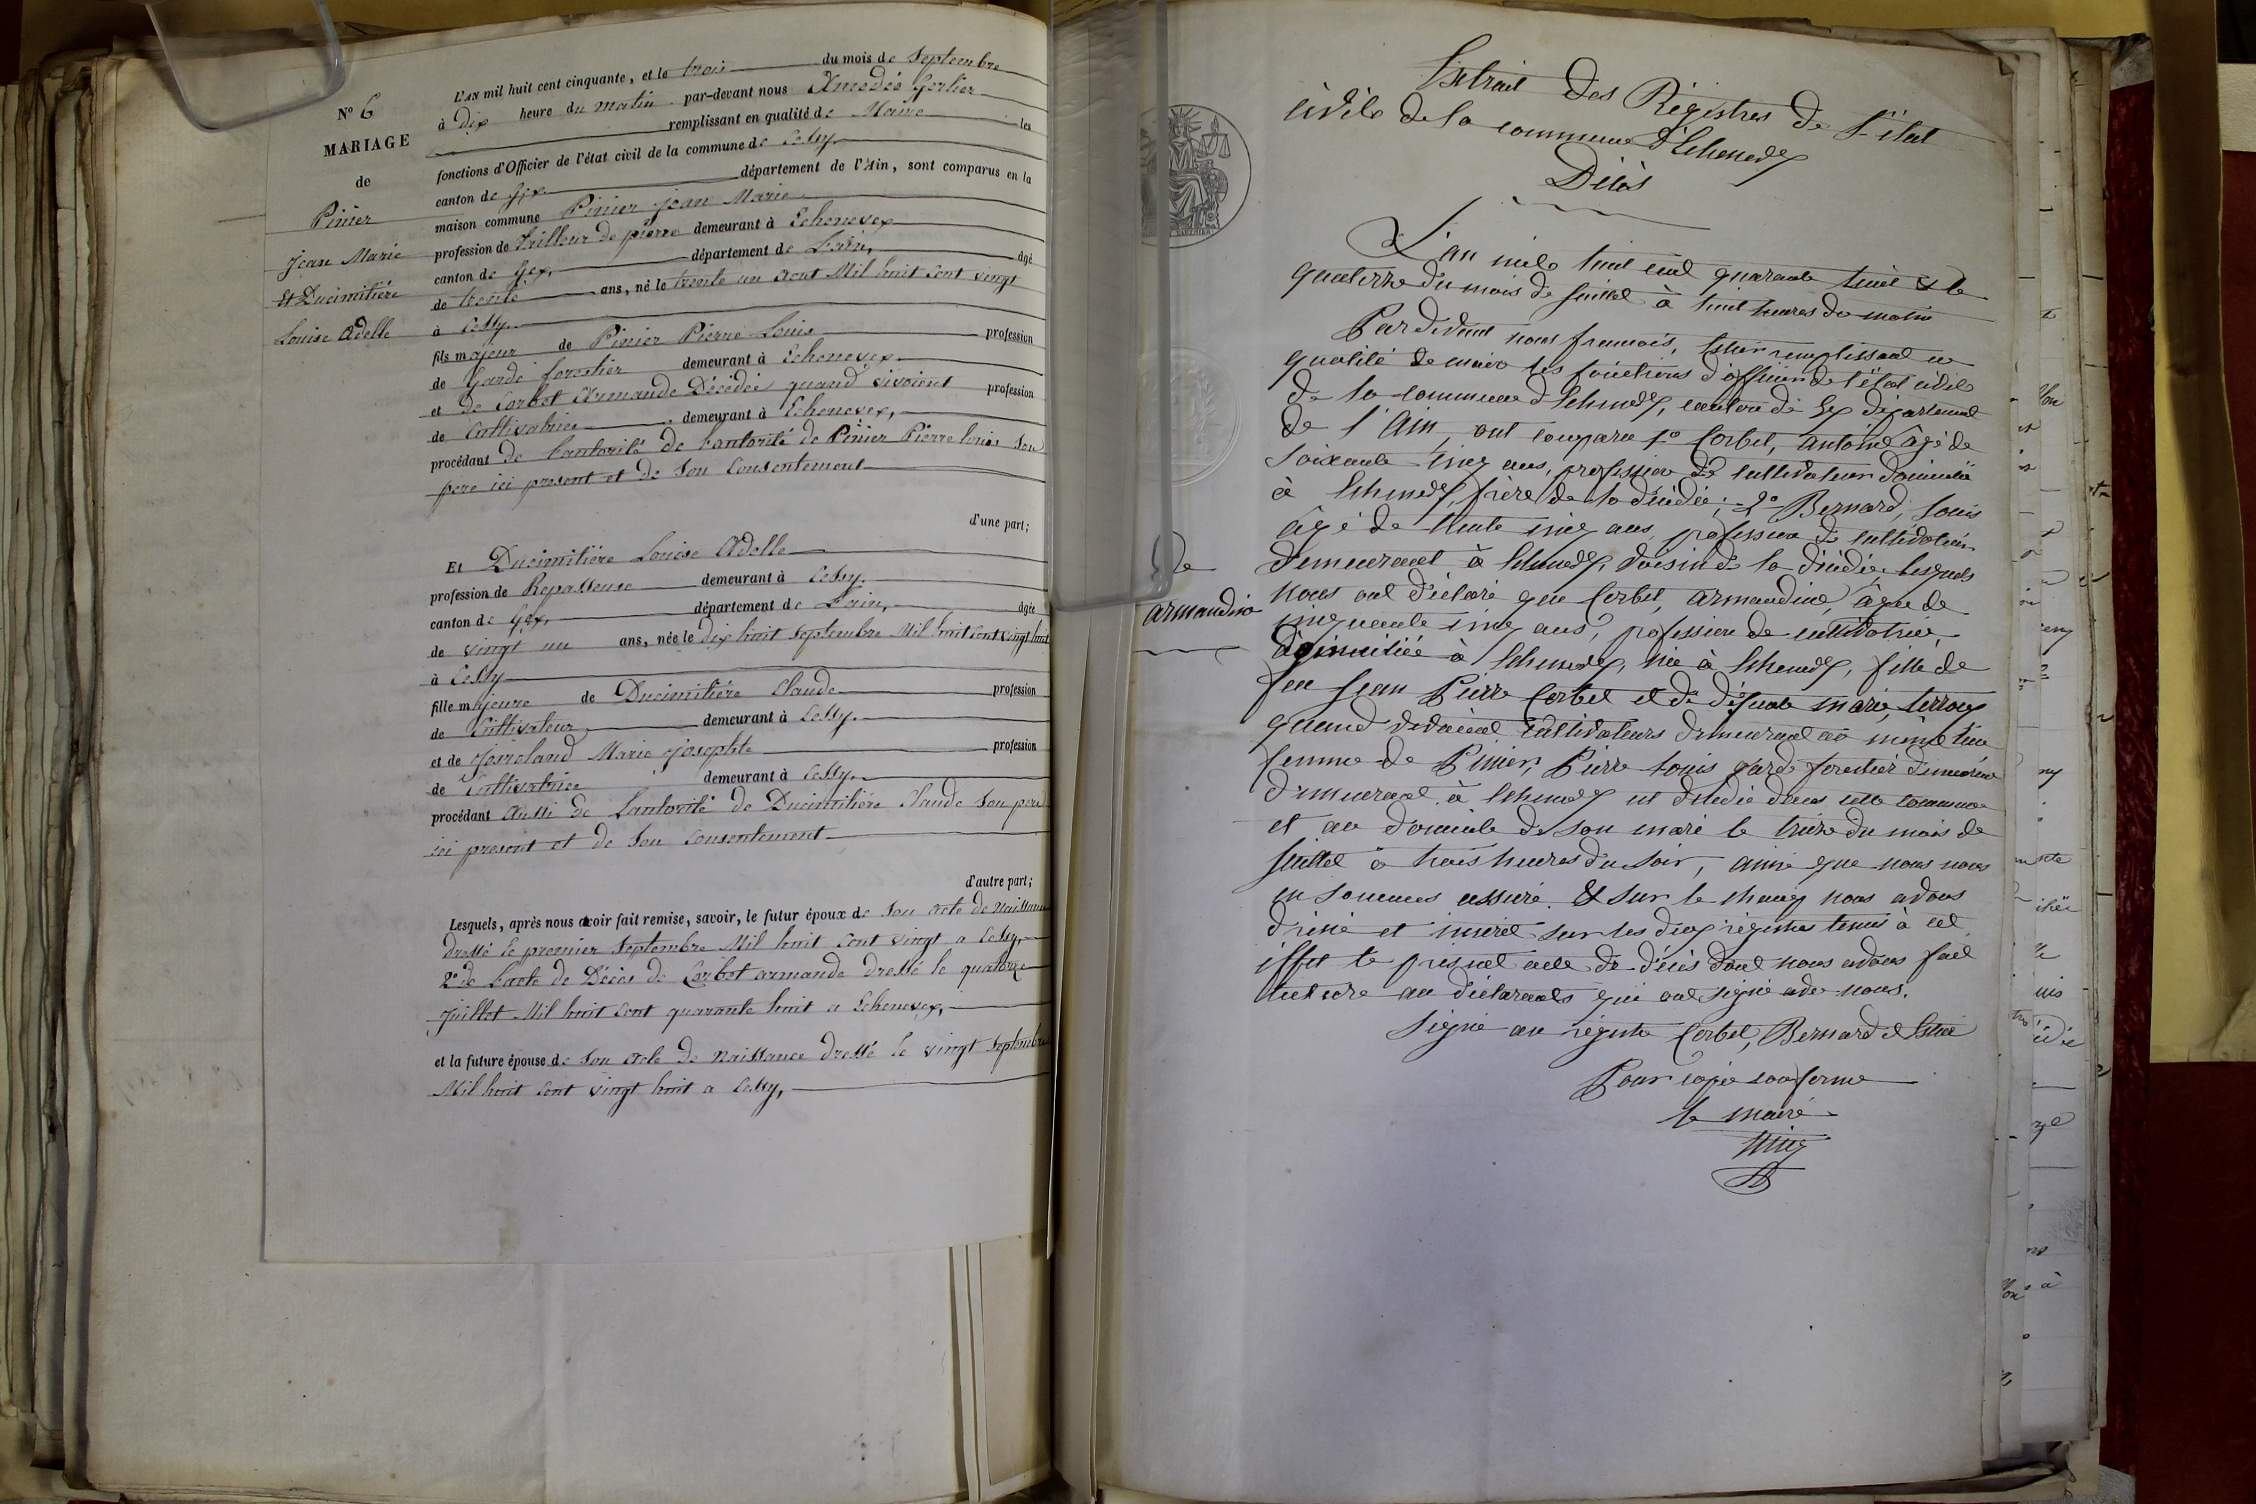 N.º 6
MARIAGE
de
Pinier
Jean Marie
Et Ducimitiére
Louise Adelle
L'AN mil huit cent cinquante, et le trois du mois de Septembre
à dix heure du matin par-devant nous Amedée Gerlier
remplissant en qualité de Maire les
fonctions d'Officier de l'état civil de la commune de Cessy
canton de Gex département de l'Ain, sont comparus en la
maison commune Pinier Jean Marie
profession de tailleur de pierre demeurant à Echenevex
canton de Gex, département de L'ain, âgé
de trente ans, né le trente un aout Mil huit Cent vingt
à Cessy
fils majeur de Pinier Pierre Louis profession
de Garde forestier demeurant à Echenevex
et de Corbet Armande Décédée quand vivoient profession
de Cultivatrice demeurant à Echenevex,
procédant de Lautorité de Lautorité de Pinier Pierre louis Son
pere ici present et de Son Consentement
d'une part;
Et Ducimitiére Louise Adelle
profession de Repasseuse demeurant à Cessy.
canton de Gex, département de L'ain, âgée
de vingt un ans, née le dix huit Septembre Mil huit Cent vingt huit
à Cessy
fille majeure de Ducimitiére Claude profession
de Cultivateur demeurant à Cessy.
et de Marie Josephte profession
de Cultivatrice demeurant à Cessy,
procédant Aussi de Lautorité de Ducimitiére Claude Son pere
ici present et de Son Consentement
d'autre part;
Lesquels, après nous avoir fait remise, savoir, le futur époux de Son Acte de Naissance
Dressé le premier Septembre Mil huit Cent vingt a Cessy,
2º de Lacte de Décès de Corbet armande dressé le quatorze
Juillet Mil huit Cent quarante huit a Echenevex,
et la future épouse de Son Acte de Naissance Dressé le vingt Septembre
Mil huit Cent vingt huit a Cessy,
Extrait des Régistres de l'état
civile de la commune d'Echenevex
Décès
L'an mile huit cent quarante huit & le
quatorze du mois de Juillet à huit heures du matin
Pardevant nous francois, remplissant en
qualité de maire les fonctions d'officier de l'état civile
de la commune d'Echenevex, canton de Gex département
de l'Ain, ont comparu 1º Corbet, antoine âgé de
soixante cinq ans, profession de cultivateur domicilié
à Echenevex, frère de la décédée; 2º Bernard, Louis
âgé de trente cinq ans, profession de cultivateur
demeurant à Echenevex, voisin de la décédée, lesquels
nous ont déclaré que Corbet, armandine, âgée de
cinquante cinq ans, profession de cultivatrice,
domiciliée à Echenevex, née à Echenevex, fille de
feu Jean Pierre Corbet et de défunte marie
quand vivaient cultivateurs demeurant au même lieu
femme de Pinier, Pierre Louis garde forestier
demeurant à Echenevex est décédée dans cette commune
et au domicile de son mari le treize du mois de
Juillet à trois heures du soir, ainsi que nous nous
en sommes assuré. Et sur le champ nous avons
dressé et inseré sur les deux régistres tenus à cet
effet le présent acte de décès dont nous avons fait
lecture au déclarants qui ont signé avec nous.
Signé au régistre Corbet, Bernard &
Pour copie conforme
le maire
De
armandine